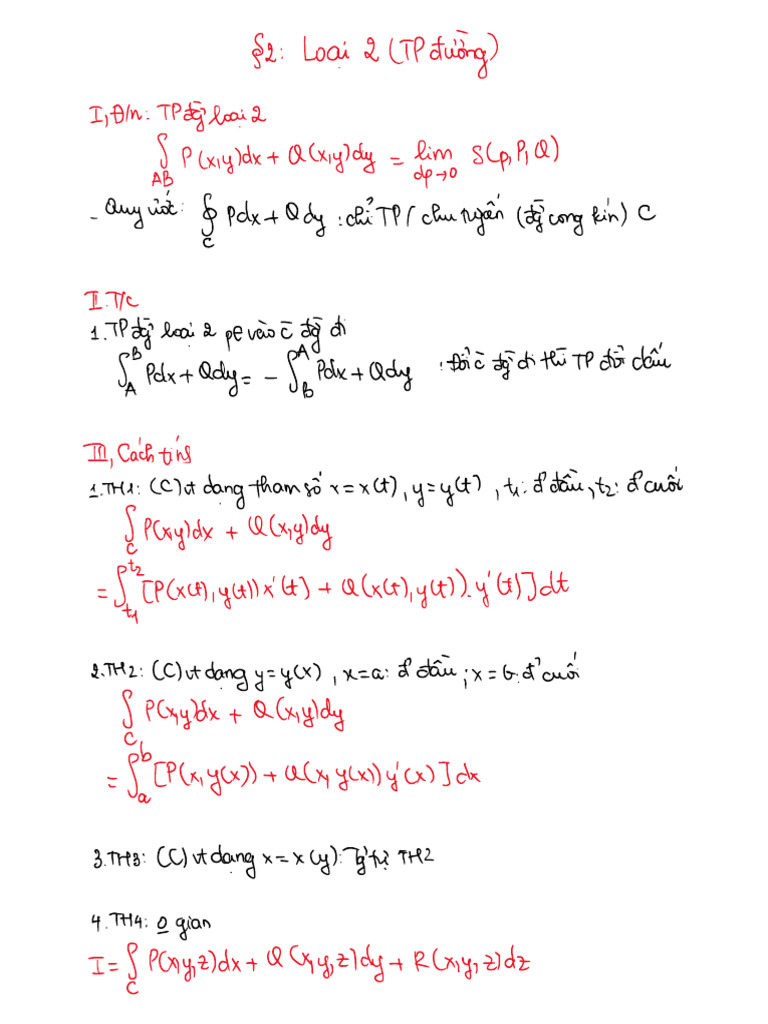 §2: Loại 2 (TP đường)
I, Đ/n: TP đg̀ loại 2
∫_AB P(x,y)dx + Q(x,y)dy = lim_{dp→0} S(p,P,Q)
- Quy ước: ∮_C Pdx + Qdy : chỉ TP / chu tuyến (đg̀ cong kín) C
II. T/c
1. TP đg̀ loại 2 vào đg̀ đi
∫_A^B Pdx + Qdy = - ∫_B^A Pdx + Qdy : Đổi đg̀ đi thì TP đổi dấu
III, Cách tính
1. TH1: (C) vt dạng tham số x = x(t), y = y(t), t1: đ' đầu, t2: đ' cuối
∫_C P(x,y)dx + Q(x,y)dy
= ∫_{t1}^{t2} [P(x(t), y(t)) x'(t) + Q(x(t), y(t)). y'(t)] dt
2. TH2: (C) vt dạng y = y(x), x = a: đ' đầu; x = b: đ' cuối
∫_C P(x,y)dx + Q(x,y)dy
= ∫_a^b [P(x, y(x)) + Q(x, y(x)) y'(x)] dx
3. TH3: (C) vt dạng x = x(y): Tg tự TH2
4. TH4: 0 gian
I = ∫_C P(x,y,z)dx + Q(x,y,z)dy + R(x,y,z)dz